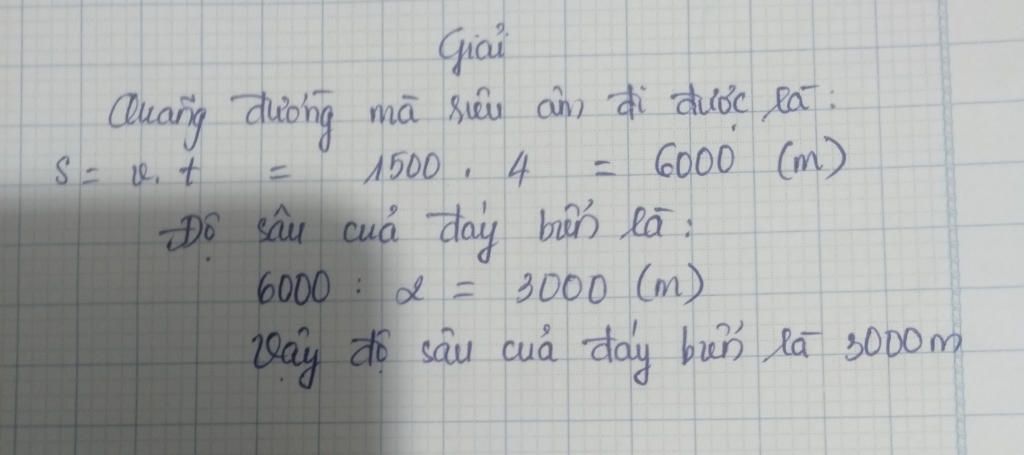 Giải
Quãng đường mà siêu âm đi được là:
S = v. t = 1500 . 4 = 6000 (m)
Độ sâu của đáy biển là:
6000 : 2 = 3000 (m)
Vậy độ sâu của đáy biển là 3000m